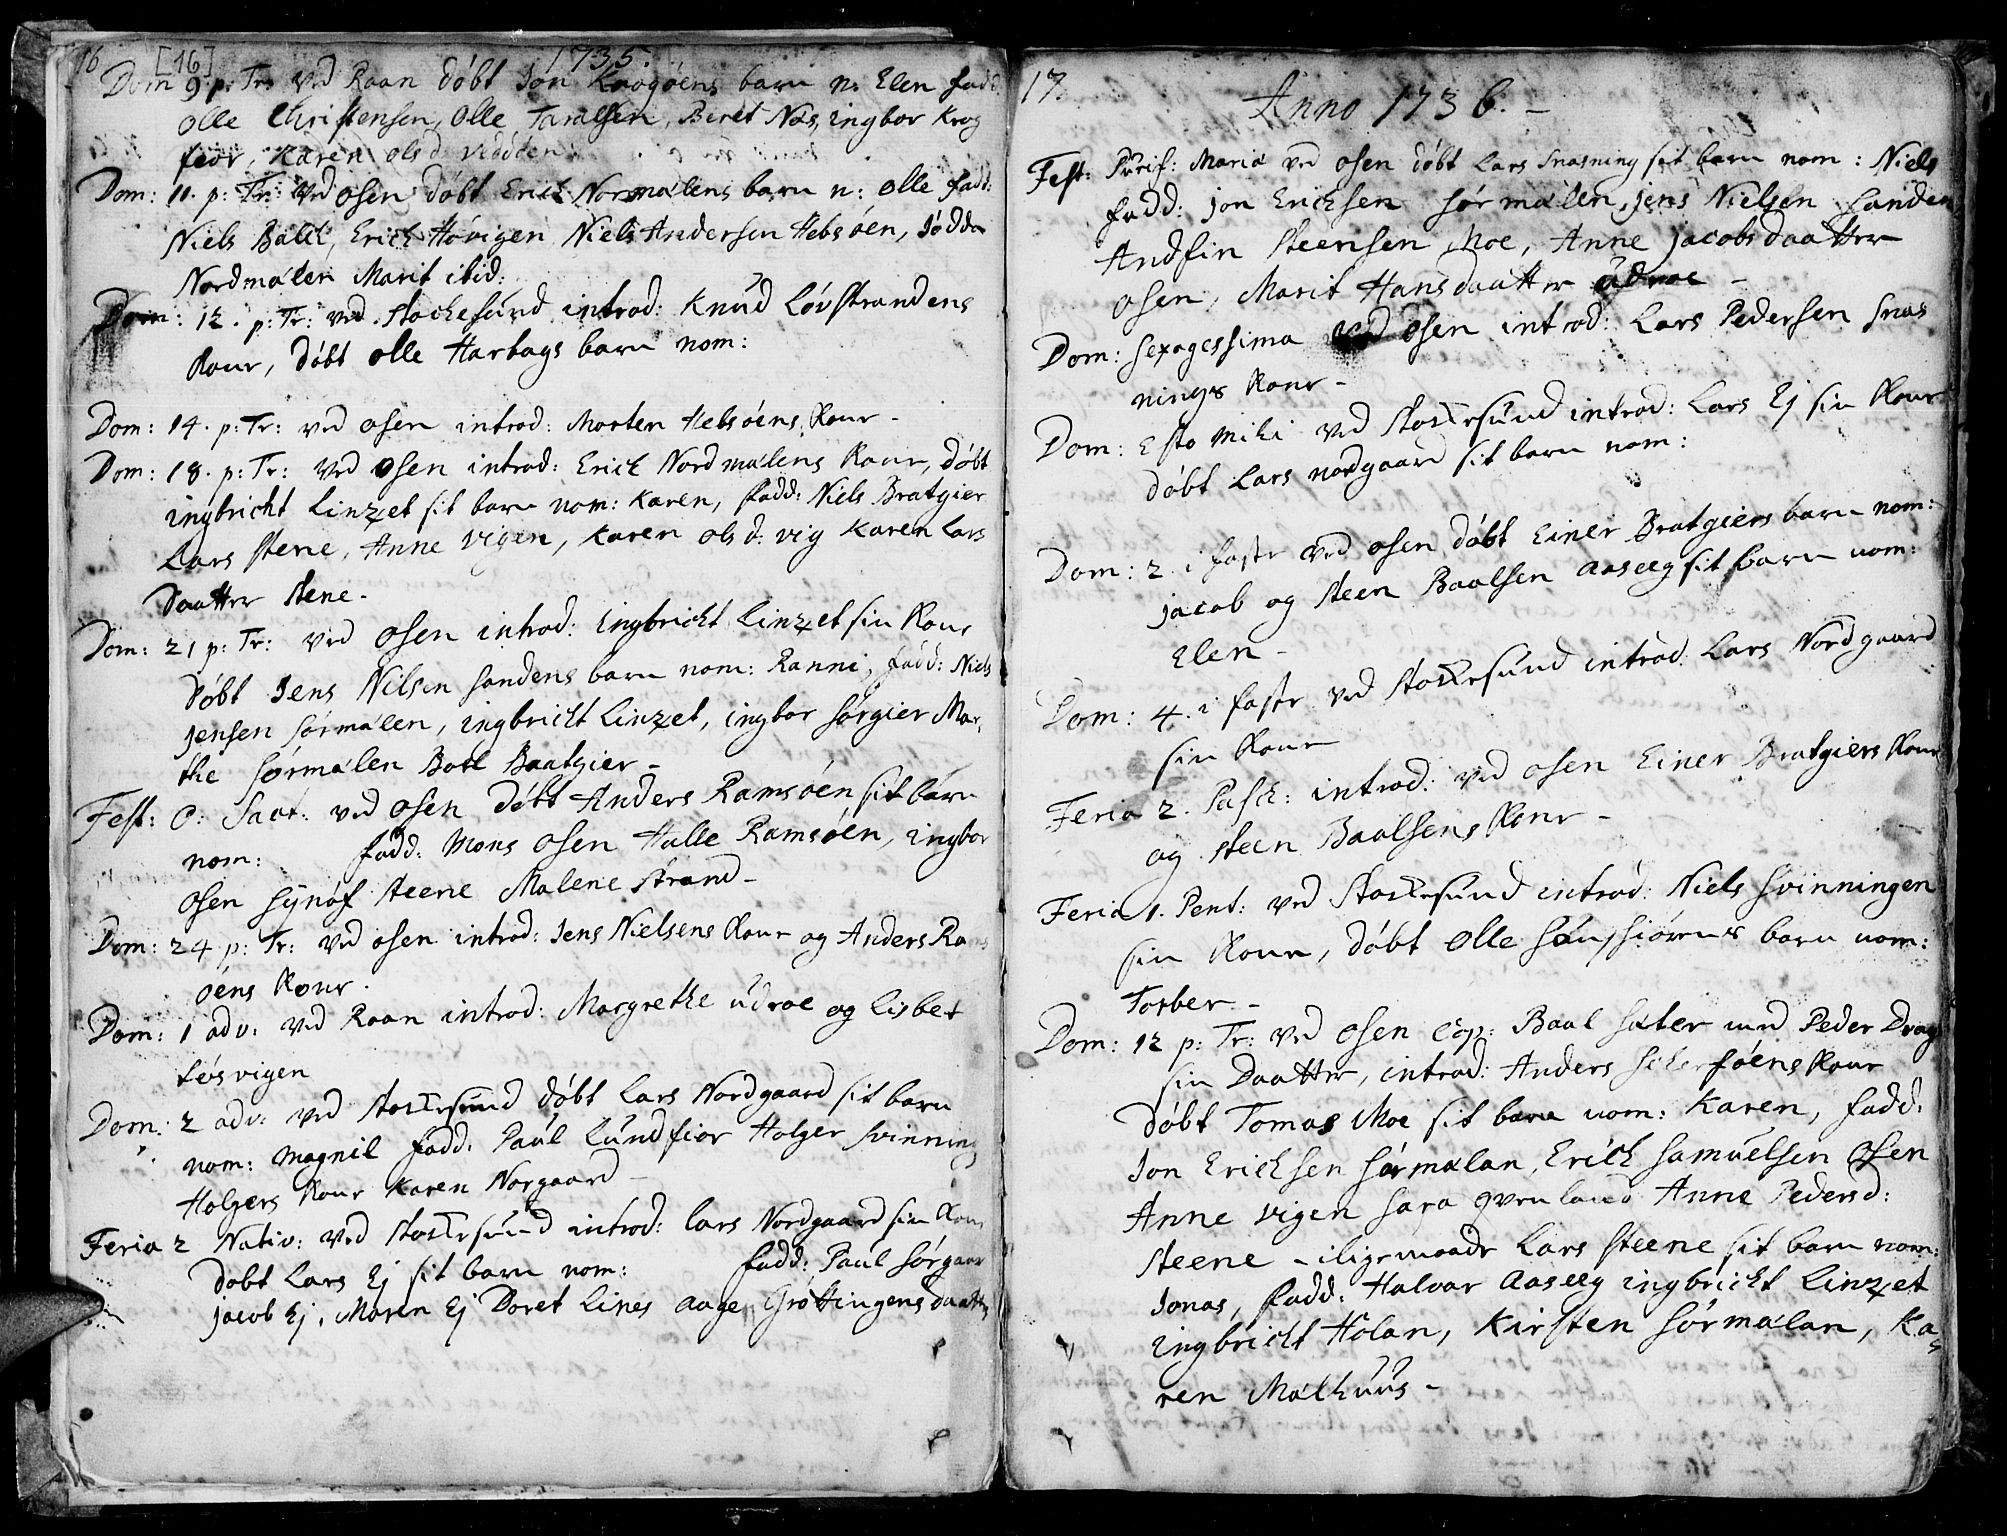 16 [16] 1735.
Dom 9 p: Tr: ved Raan döbt Jon Kragöens barn n: Elen fadd:
Olle Christensen, Olle Taralsen, Beret Næs, ingbor Krog
fior, Karen olsd
Dom: 11. p: Tr: ved osen döbt Erich Normalens barn n: olle fadd:
Niels Balck, Erich Hövigen Niels Andersen Hebsöen, Jödda
Nordmalen Marit ibid:
Dom: 12. p: Tr: ved Stochesund introd: Knud Lövstrandens
Konr, döbt olle Harbags barn nom:
Dom: 14. p: Tr: ved osen introd: Morten Hebsöens Konr -
Dom: 18. p: Tr: ved osen introd: Erich Nordmalens Konr, döbt
ingbricht Linzet sit barn nom: Karen, fadd: Niels Bratgier
Lars Stene, Anne vigen, Karen olsd: vig Karen Lars
Daatter Stene -
Dom: 21 p: Tr: ved osen introd: Ingbricht Linzet sin Kone
döbt Jens Nilsen Sandens barn nom: Ranni, fadd: Niels
Jensen Sörmalen, ingbricht Linzet, ingbor Sörgier Mar-
the Sörmalen Botl Bratgier -
Fest: O: Sanct: ved osen döbt Anders Ramsöen sit barn
nom: fadd: Mons osen Halle Ramsöen, ingbor
osen Synöf Steene Malene Strand -
Dom: 24 p: Tr: ved osen introd: Jens Nielsens Konr og Anders Rams
öens Konr.
Dom: 1 adv: ved Raan introd: Margrethe udroe og Lisbet
Lösvigen
Dom: 2 adv: ved Stockesund döbt Lars Nordgaard sit barn
nom: magnil fadd: Paul Lundfior Holger Svinning
Holgers Konr Karen Norgaard -
Feria 2 Nativ: ved Stockesund introd: Lars Nordgaard sin Kone
döbt Lars Ej sit barn nom: fadd: Paul Sörgaar
Jacob Ej, Maren Ej Doret Lines aage Gröttingens daatter
17.
Anno 1736. -
Fest: Purif: Mariæ ved osen döbt Lars Snasning sit barn nom: Niels
fadd: Jon Erichsen Sörmalen, Jens Nielsen Sanden
Andfin Steensen Moe, Anne Jacobsdaatter
osen, Marit Hansdaatter udroe -
Dom: Sexagessima ved osen introd: Lars Pedersen Snas
nings Konr -
Dom: Esto mihi ved Stockesund introd: Lars Ej sin Konr
döbt Lars nordgaard sit barn nom:
Dom: 2 i faste ved osen döbt Einer Bratgiers barn nom:
Jacob og Steen Baalsen aaseeg sit barn nom:
Elen -
Dom: 4. i faste ved Stockesund introd: Lars Nordgaard
sin Konr
Feria 2. Pasch: introd: ved osen Einer Bratgiers Konr
og Steen Baalsens Konr -
Feria 1. Pent: ved Stockesund introd: Niels Svinningen
sin Konr, döbt olle barn nom:
Torber -
Dom: 12 p: Tr: ved osen Cop: Baal Sæter med Peder Drag
sin Daatter, introd: Anders Konr
döbt Tomas Moe sit barn nom: Karen, fadd:
Jon Erichsen Sörmalan, Erich Samuelsen osen
Anne vigen Sara qvenland Anne Pedersd:
Steene - iligemaade Lars Steene sit barn nom:
Jonas, fadd: Halvor aaseeg ingbricht Linzet
ingbricht Holan, Kirsten Sörmalan, Ka-
ren Malhuus -